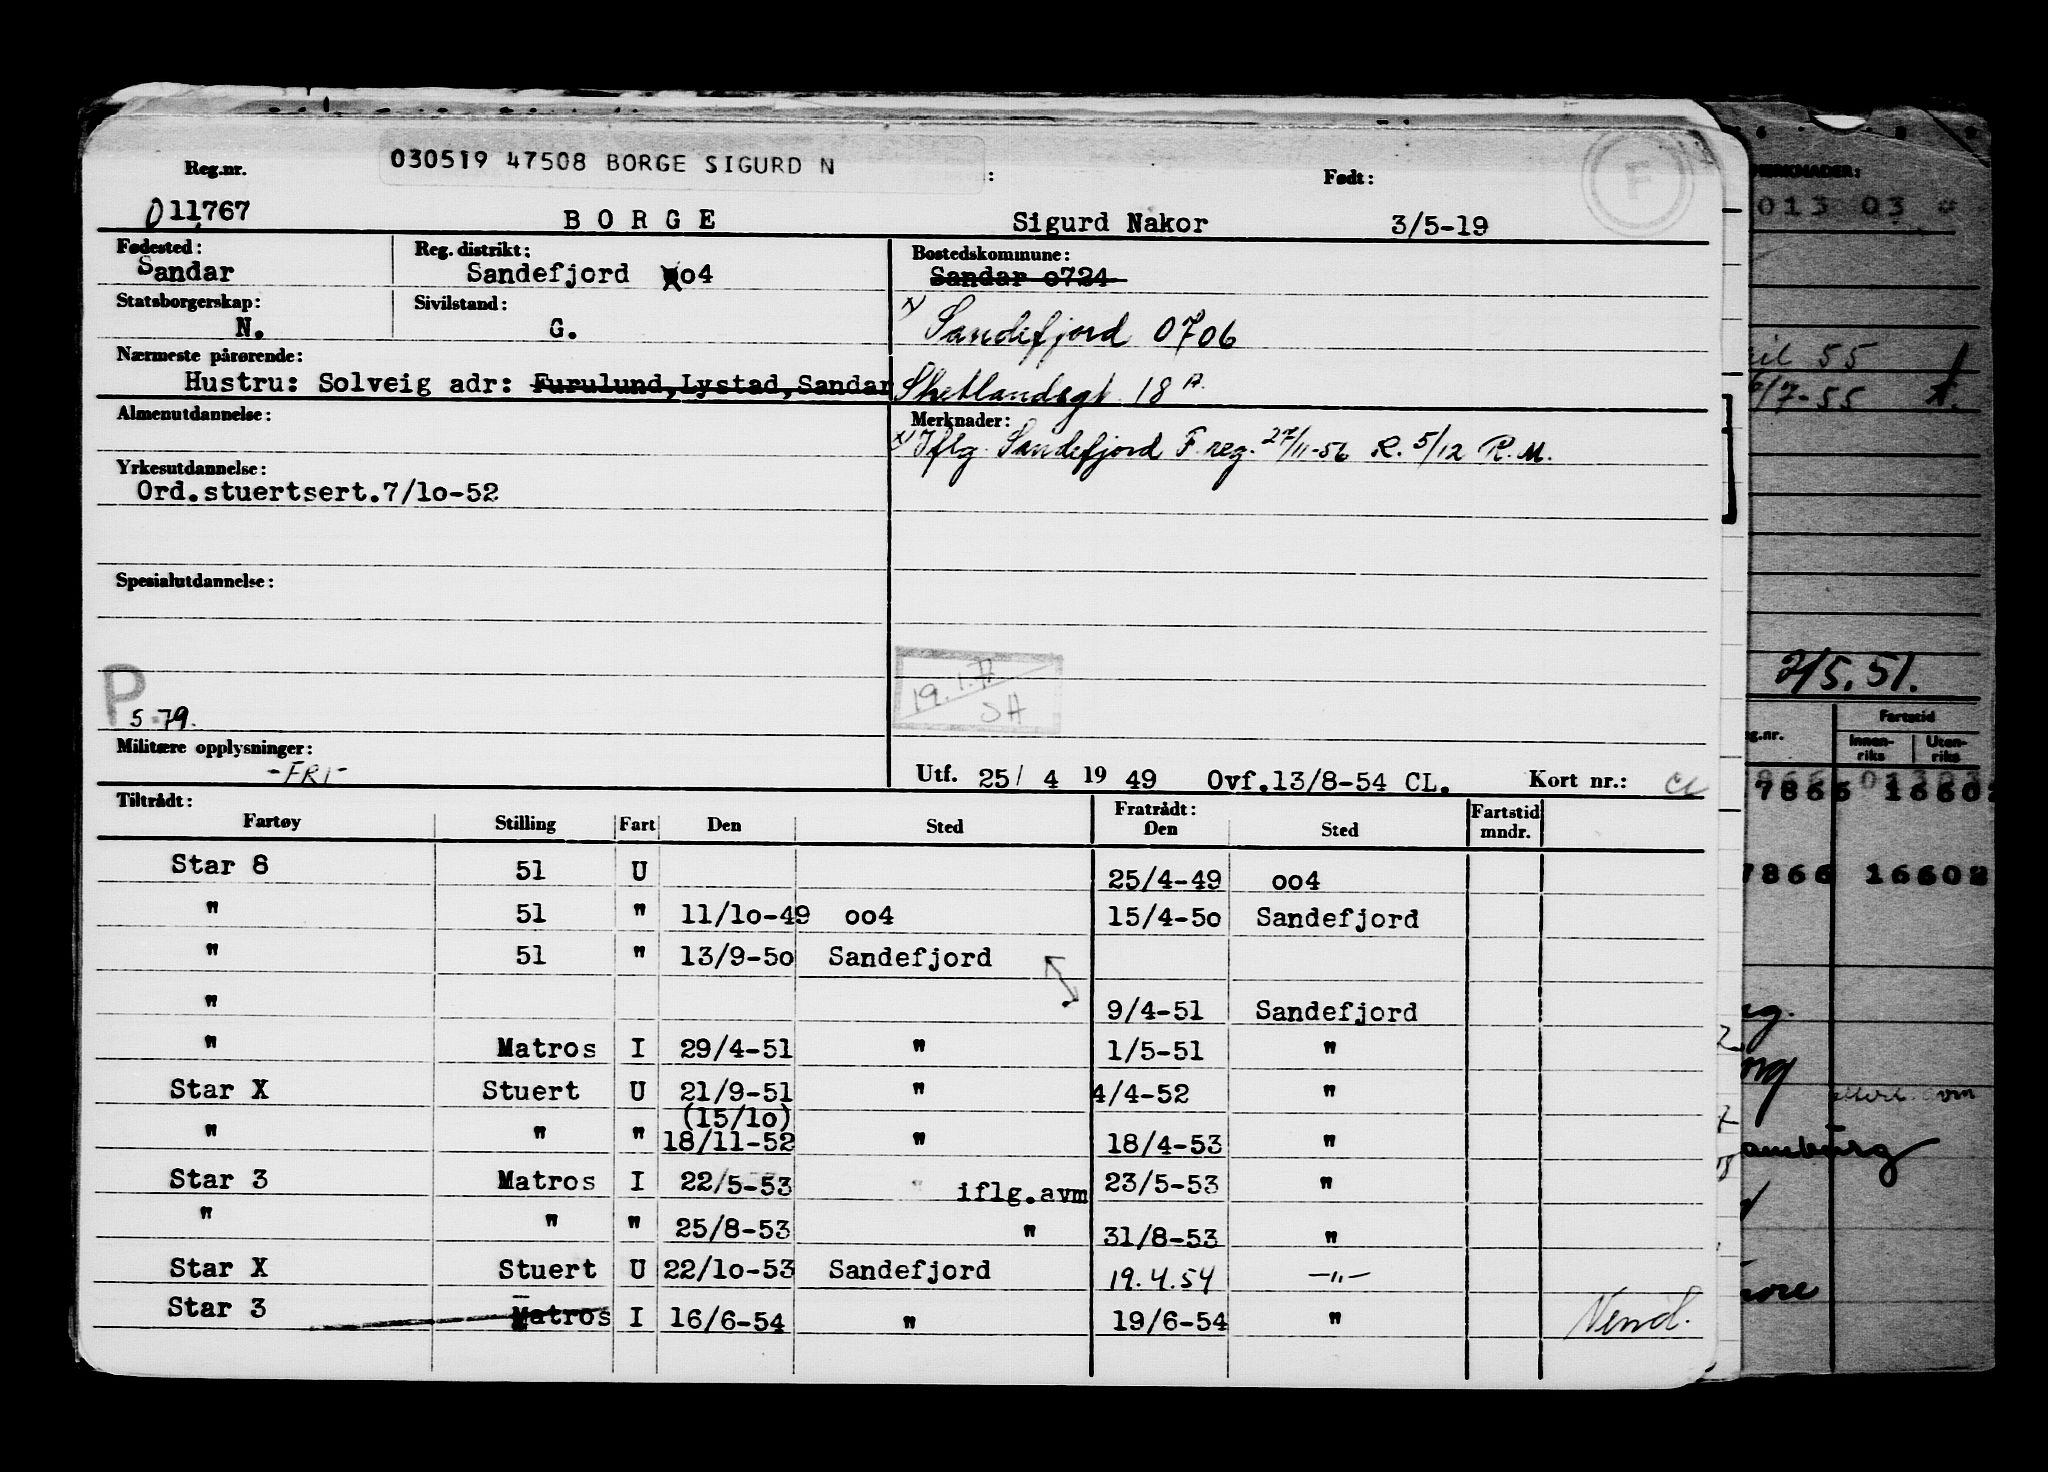 030519 47508 BORGE SIGURD N
Reg.nr. : Født:
011767 BORGE Sigurd Nakor 3/5-19
Fødested: Reg. distrikt: Bostedskommune:
Sandar Sandefjord oo4 Sandar o724
Statsborgerskap: Sivilstand:
N. G. x) Sandefjord 0706
Nærmeste pårørende:
Hustru: Solveig adr: Furulund,Lystad,Sandar Shetlandsgt. 18 A.
Almenutdannelse: Merknader:
x) Iflg. Sandefjord F.reg. 27/11-56 R. 5/12 R.M.
Yrkesutdannelse:
Ord.stuertsert.7/lo-52
Spesialutdannelse:
P.
5 79.
19.1.
SH
Militære opplysninger:
-FRI-
Utf. 25/ 4 19 49 Ovf.13/8-54 CL. Kort nr.: CL
Tiltrådt: Fratrådt: Fartstid
Fartøy Stilling Fart Den Sted Den Sted mndr.
Star 8 51 U 25/4-49 oo4
" 51 " 11/lo-49 oo4 15/4-5o Sandefjord
" 51 " 13/9-5o Sandefjord
" 9/4-51 Sandefjord
" Matros I 29/4-51 " 1/5-51 "
Star X Stuert U 21/9-51 " 4/4-52 "
(15/lo)
" " " 18/11-52 " 18/4-53 "
Star 3 Matros I 22/5-53 " iflg.avm 23/5-53 "
" " " 25/8-53 " 31/8-53 "
Star X Stuert U 22/lo-53 Sandefjord 19.4.54 -"-
Star 3 Matros I 16/6-54 " 19/6-54 "
Vend.
RKNADER:
013 03
55
/7-55
2/5.51.
g.nr. Fartstid
Innen-
riks
Uten-
riks
7866 16602
7866 16602
avm